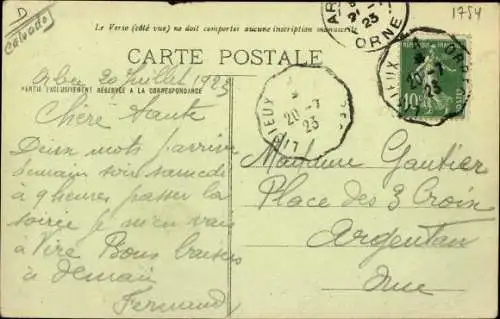 D
Calvados
Le Verso (côté vue) ne doit comporter aucune inscription manuscrite
1754
CARTE POSTALE
PARTIE EXCLUSIVEMENT RÉSERVÉE A LA CORRESPONDANCE
20 Juillet 1923
Chère tante
Deux mots j'arrive
demain soir samedi
à 9 heures passer la
soirée je m'en vais
à Vire Bons baisers
à demain
Fernand
LISIEUX
20-7
23
21
23
ORNE
LISIEUX
20-7
23
10
Madame Gautier
Place des 3 Croix
Argentan
Orne